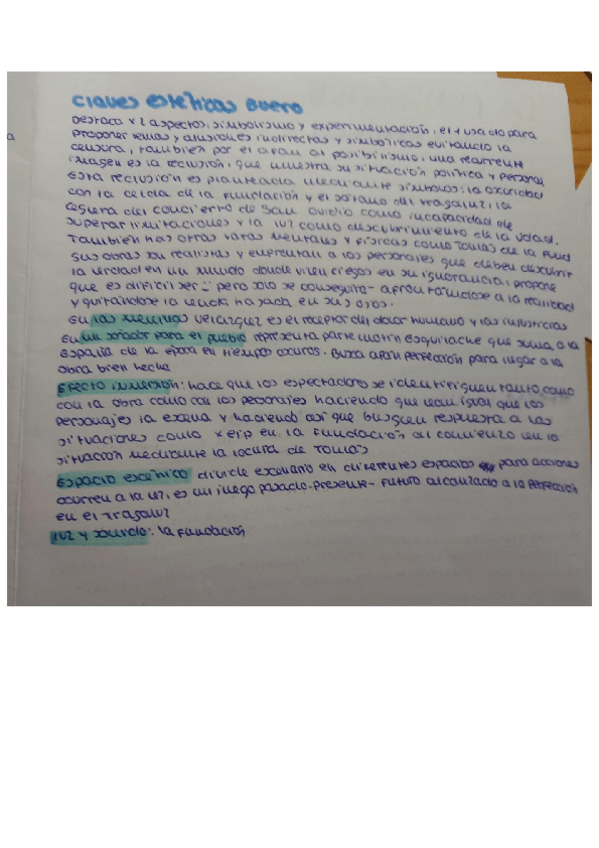 Claves estéticas Buero
Destaca x 2 aspectos: simbolismo y experimentación, el 1 usado para
proponer temas y alusiones indirectas y simbólicas evitando la
censura, también por el afán al posibilismo, una recurrente
imagen es la reclusión, que muestra su situación política y personal
Esta reclusión es planteada mediante símbolos: la oscuridad
con la celda de la Fundación y el sótano del tragaluz: la
ceguera del concierto de San Ovidio como incapacidad de
superar limitaciones y la luz como descubrimiento de la vdad.
También hay otras taras mentales y físicas como Tomás de la Fund
Sus obras son realistas y enfrentan a los personajes que deben descubrir
la verdad en un mundo donde viven ciegos en su ignorancia, propone
que es difícil ser pero solo se conseguirá afrontándose a la realidad
y quitándose la venda hayada en sus ojos.
En las Meninas Velázquez es el receptor del dolor humano y las injusticias
En un soñador para el pueblo representa parte motín esquilache que suma a la
España de la época en tiempos oscuros. Busca perfección para lugar a la
obra bien hecha
Efecto inmersión: hace que los espectadores se identifiquen tanto como
con la obra como con los personajes haciendo que vean igual que los
personajes la escena y haciendo así que busquen respuesta a las
situaciones como x ejp en la Fundación al comienzo ven la
situación mediante la locura de Tomás
Espacio escénico divide escenario en diferentes espacios para acciones
ocurren a la vez, es un juego pasado-presente-futuro alcanzado a la perfección
en el Tragaluz
Luz y sonido: la Fundación
a